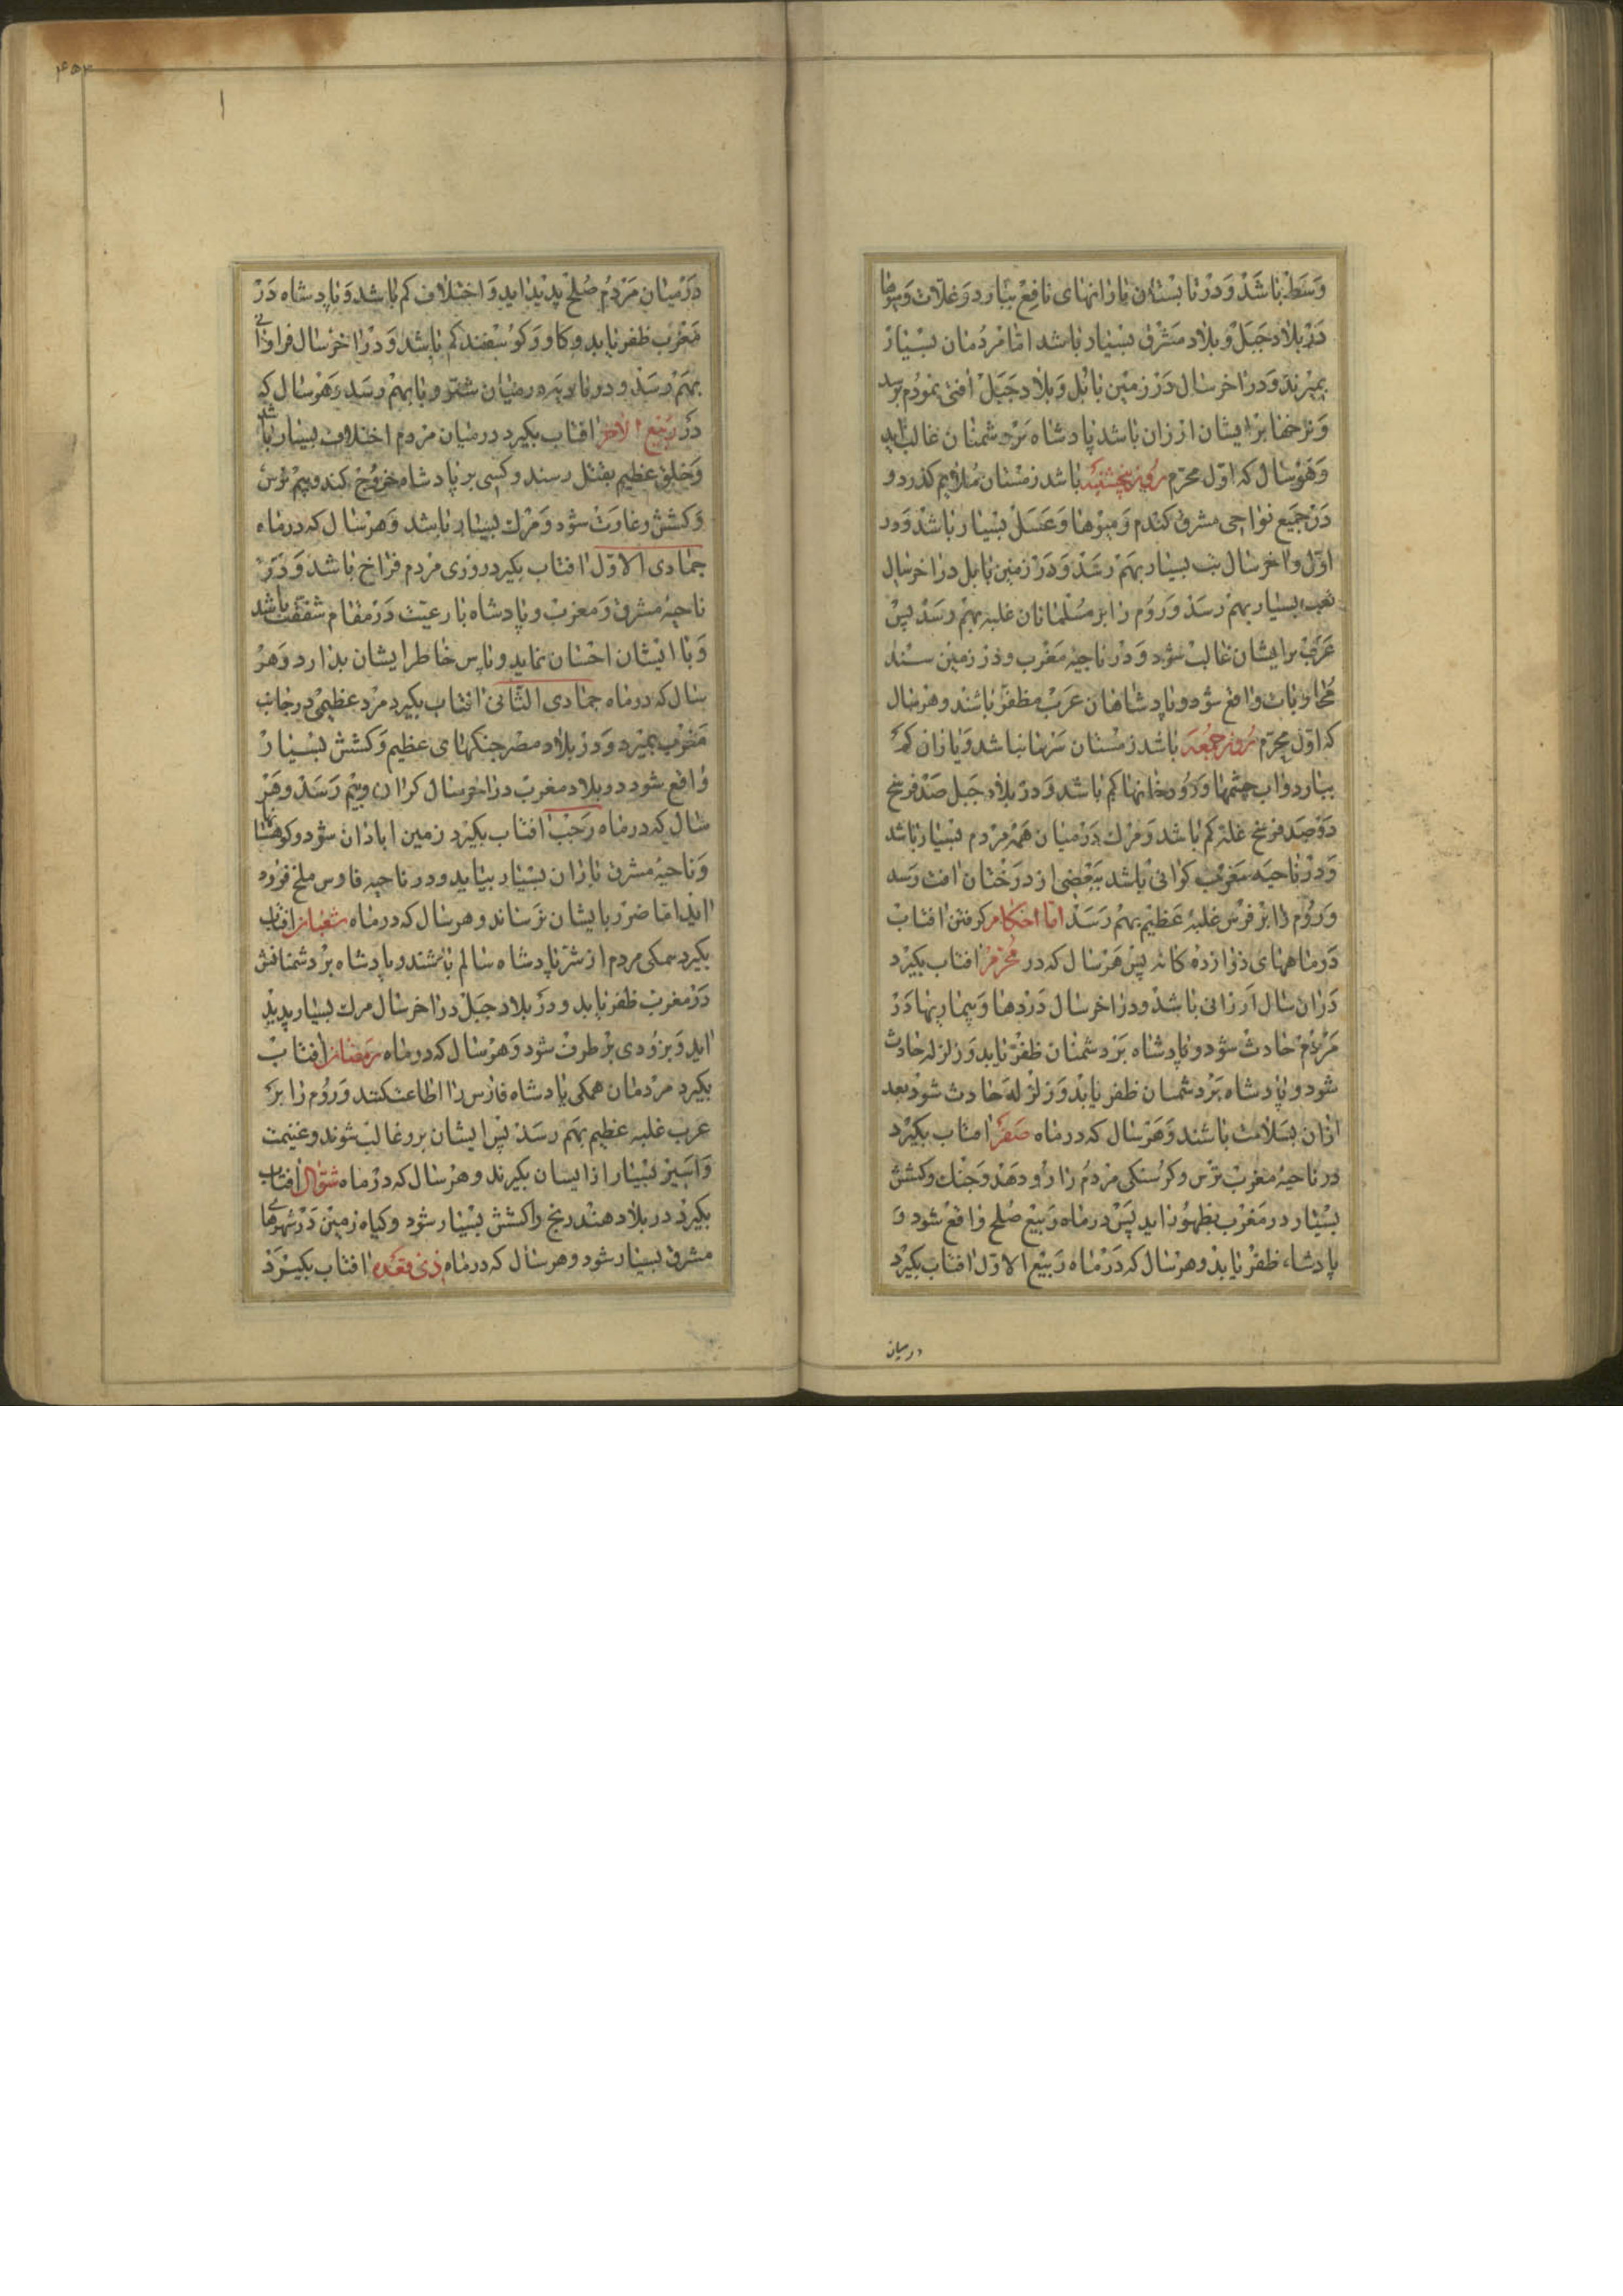 وسط باشد و در تابستان بارانهای نافع ببارد و غلات و میوها
در بلاد جبل و بلاد مشرق بسیار باشد اما مردمان بسیار
بمیرند و در اخر سال در زمین بابل و بلاد جبل افتی بمردم برسد
و نرخها بر ایشان ارزان باشد پادشاه بر دشمنان غالب اید
و هر سال که اول محرم روز پنجشنبه باشد زمستان ملایم کذرد و
در جمیع نواحی مشرق کندم و میوها و عسل بسیار باشد و در
اول و اخر سال تب بسیار بهم رسد و در زمین بابل در اخر سال
تعب بسیار بهم رسد و روم را بر مسلمانان غلبه بهم رسد پس
عرب بر ایشان غالب شود و در ناحیه مغرب و در زمین سند
محاربات واقع شود و پادشاهان عرب مظفر باشند و هر سال
که اول محرم روز جمعه باشد زمستان سرما نباشد و باران کم
ببارد و اب چشمها و رودخانها کم باشد و در بلاد جبل صد فرسخ
در صد فرسخ غله کم باشد و مرك در میان همه مردم بسیار باشد
و در ناحیه مغرب کرانی باشد ببعضی از درختان افت رسد
و روم را بر فرس غلبه عظیم بهم رسد اما احکام کرفتن افتاب
در ماههای دوازده کانه پس هر سال که در محرم افتاب بکیرد
دران سال ارزانی باشد و در اخر سال دردها و بیماریها در
مردم حادث شود و پادشاه بر دشمنان ظفر یابد و زلزله حادث
شود و پادشاه بر دشمنان ظفر یابد و زلزله حادث شود بعد
ازان بسلامت باشند و هر سال که در ماه صفر افتاب بکیرد
در ناحیه مغرب ترس و کرسنکی مردم را رو دهد و جنك و کشش
بسیار در مغرب بظهور اید پس در ماه ربیع صلح واقع شود و
پادشاه ظفر یابد و هر سال که در ماه ربیع الاول افتاب بکیرد
در میان
۴۵۴
در میان مردم صلح پدید اید و اختلاف کم باشد و پادشاه در
مغرب ظفر یابد و کاو و کوسفند کم باشد و در اخر سال فراوانی
بهم رسد و در میان شتر وبا بهم رسد و هر سال که
در ربیع الاخر افتاب بکیرد در میان مردم اختلاف بسیار باشد
و خلق عظیم بقتل رسند و کسی بر پادشاه خروج کند و بیم ترس
و کشش و غارت شود و مرك بسیار باشد و هر سال که در ماه
جمادی الاول افتاب بکیرد روزی مردم فراخ باشد و در
ناحیه مشرق و مغرب و پادشاه با رعیت در مقام شفقت باشد
و با ایشان احسان نماید و پاس خاطر ایشان بدارد و هر
سال که در ماه جمادی الثانی افتاب بکیرد مرد عظیمی در جانب
مغرب بمیرد و در بلاد مصر جنکهای عظیم و کشش بسیار
واقع شود در بلاد مغرب در اخر سال کرانی و بیم رسد و هر
سال که در ماه رجب افتاب بکیرد زمین ابادان شود و کوهستانها
و ناحیه مشرق باران بسیار بیاید و در ناحیه فارس ملخ فرود
اید اما ضرر بایشان نرساند و هر سال که در ماه شعبان افتاب
بکیرد همکی مردم از شر پادشاه سالم باشند و پادشاه بر دشمنانش
در مغرب ظفر یابد و در بلاد جبل در اخر سال مرك بسیار پدید
اید و بزودی بر طرف شود و هر سال که در ماه رمضان افتاب
بکیرد مردمان همکی پادشاه فارس را اطاعت کنند و روم را بر
عرب غلبه عظیم بهم رسد پس ایشان برو غالب شوند و غنیمت
و اسیر بسیار از ایشان بکیرند و هر سال که در ماه شوال افتاب
بکیرد در بلاد هند رنج و کشش بسیار شود و کیاه زمین در شهرهای
مشرق بسیار شود و هر سال که در ماه ذی قعده افتاب بکیرد